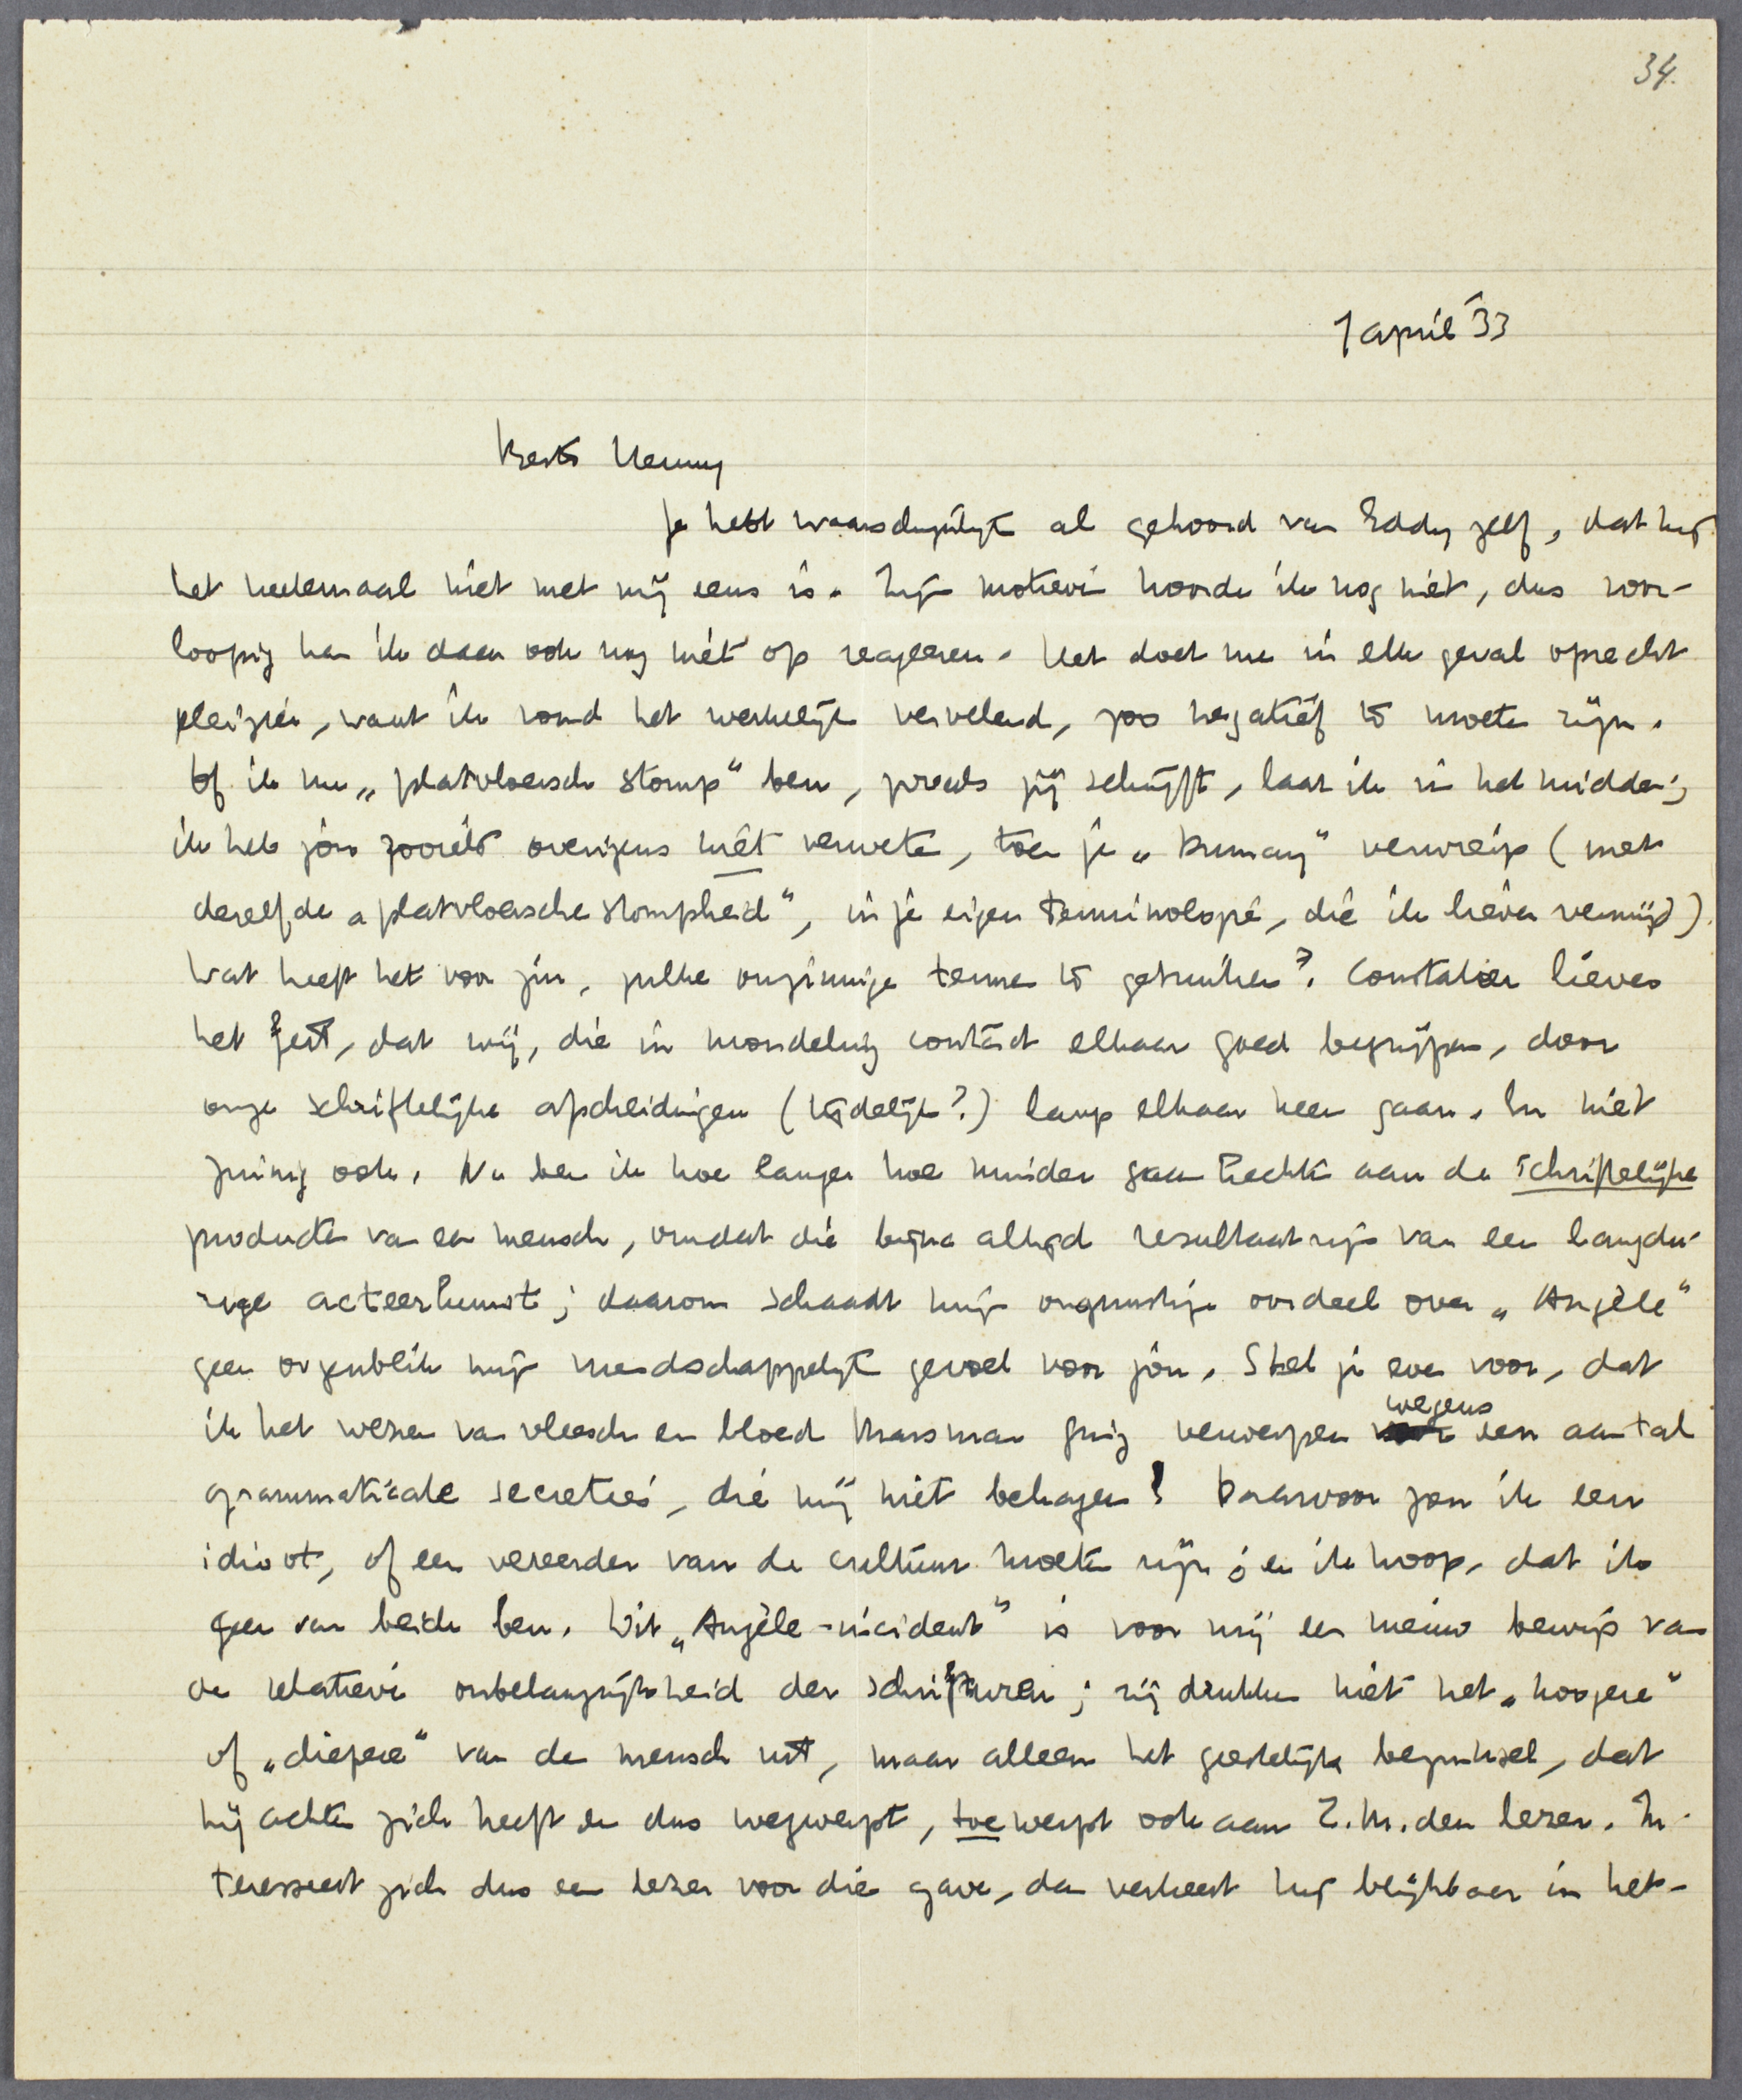 34.
1 april '33
Beste Henny
Je hebt waarschijnlijk al gehoord van Eddy zelf, dat hij
het heelemaal niet met mij eens is. Zijn motieven hoorde ik nog niet, dus voor-
loopig kan ik daar ook nog niet op reageeren. Het doet me in elk geval oprecht
pleizier, want ik vond het werkelijk vervelend, zoo negatief te moeten zijn.
Of ik nu „platvloersch stomp" ben, zooals jij schrijft, laat ik in het midden;
ik heb jou zooiets overigens niet verweten, toen je „Dumay" verwierp (met
dezelfde „platvloersche stompheid", in je eigen terminologie, die ik liever vermijd).
Wat heeft het voor zin, zulke onzinnige termen te gebruiken? Constateer liever
het feit, dat wij, die in mondeling contact elkaar goed begrijpen, door
onze schriftelijke afscheidingen (tijdelijk?) langs elkaar heen gaan. En niet
zuinig ook. Nu ben ik hoe langer hoe minder gaan hechten aan de schriftelijke
producten van een mensch, omdat die bijna altijd resultaat zijn van een langdu-
rige acteerkunst; daarom schaadt mijn ongunstige oordeel over „Angèle"
geen oogenblik mijn vriendschappelijk gevoel voor jou. Stel je even voor, dat
ik het wezen van vleesch en bloed Marsman ging verwerpen wegens een aantal
grammaticale secreties, die mij niet behagen! Daarvoor zou ik een
idioot, of een vereerder van de cultuur moeten zijn; en ik hoop, dat ik
geen van beide ben. Dit „Angèle-incident" is voor mij een nieuw bewijs van
de relatieve onbelangrijkheid der schrifturen; zij drukken niet het „hoogere"
of „diepere" van de mensch uit, maar alleen het geestelijke beginsel, dat
hij achter zich heeft en dus wegwerpt, toewerpt ook aan Z.M. den lezer. In-
teresseert zich dus een lezer voor die gave, dan verkeert hij blijkbaar in het-